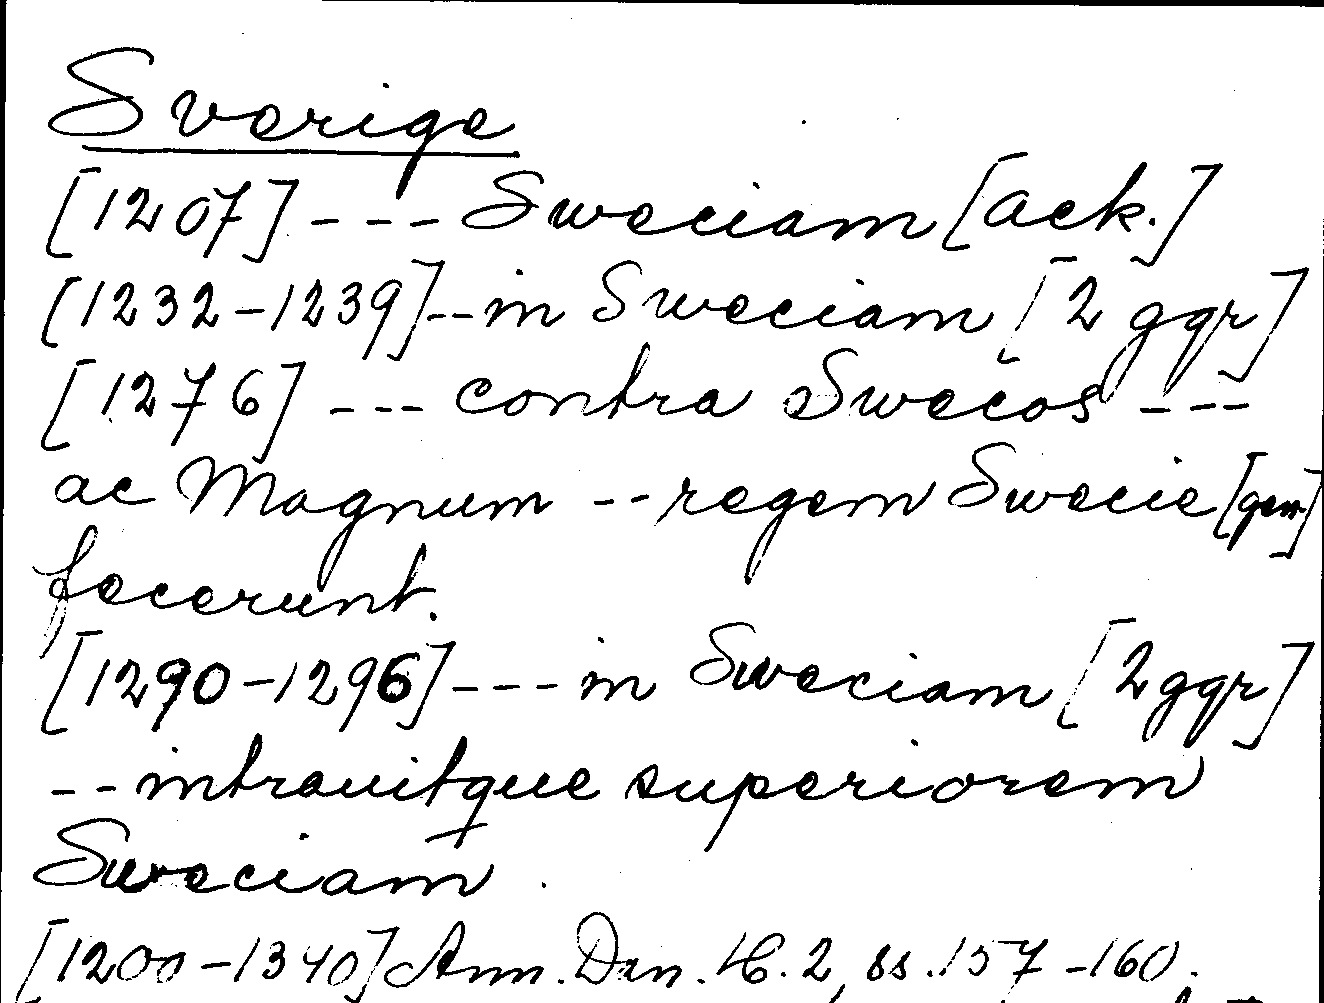 Sverige
[1207] --- Sweciam [ack.]
[1232-1239] -- in Sweciam [2 ggr]
[1276] --- contra Swecos ---
ac Magnum -- regem Swecie [gen]
fecerunt.
[1290-1296] --- in Sweciam [2 ggr]
-- intrauitque superiorem
Sweciam.
[1200-1340] Ann. Dan. H. 2, ss. 157-160.